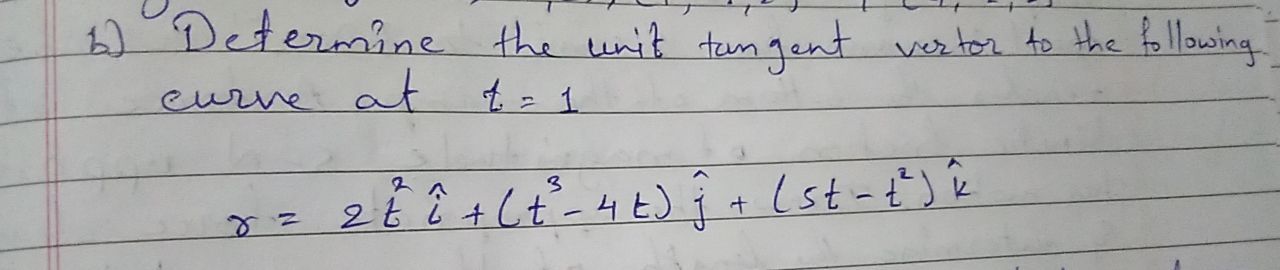 b) Determine the unit tangent vector to the following
curve at t = 1
r = 2t² î + (t³ - 4t) ĵ + (5t - t²) k̂